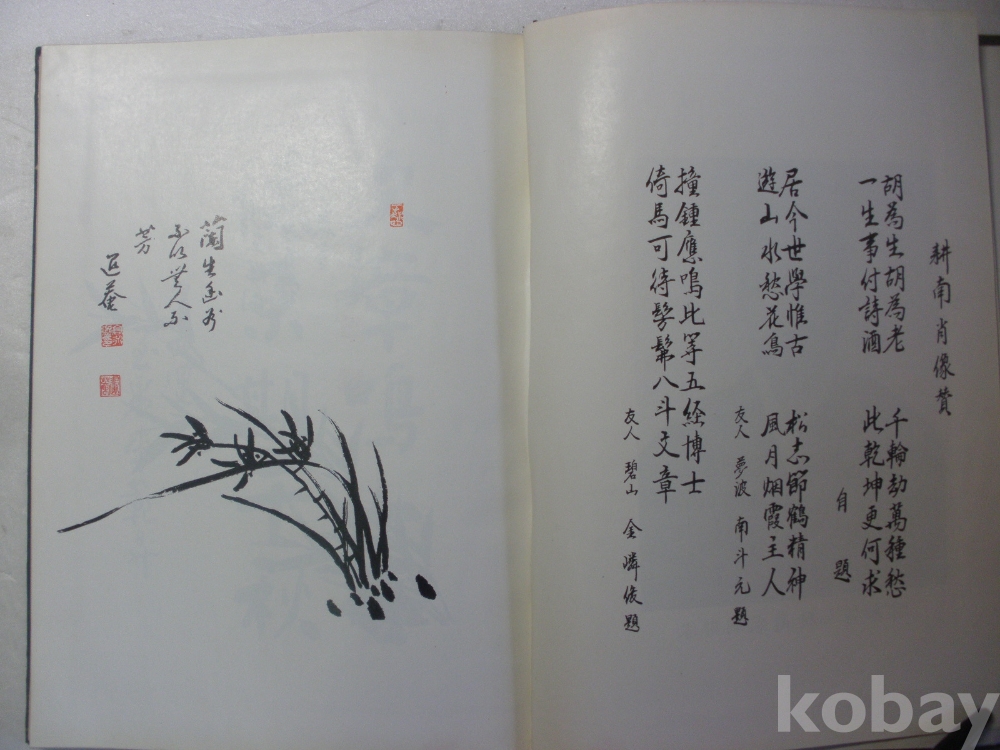 耕南肖像贊
胡為生胡為老 千輪劫萬種愁
一生事付詩酒 此乾坤更何求
自題
居今世學惟古 松志節鶴精神
遊山水愁花鳥 風月烟霞主人
友人 夢波 南斗元題
撞鍾應鳴比等五経博士
倚馬可待髣髴八斗文章
友人 碧山 金 俊題
蘭生幽谷
不以無人不
芳
kobay